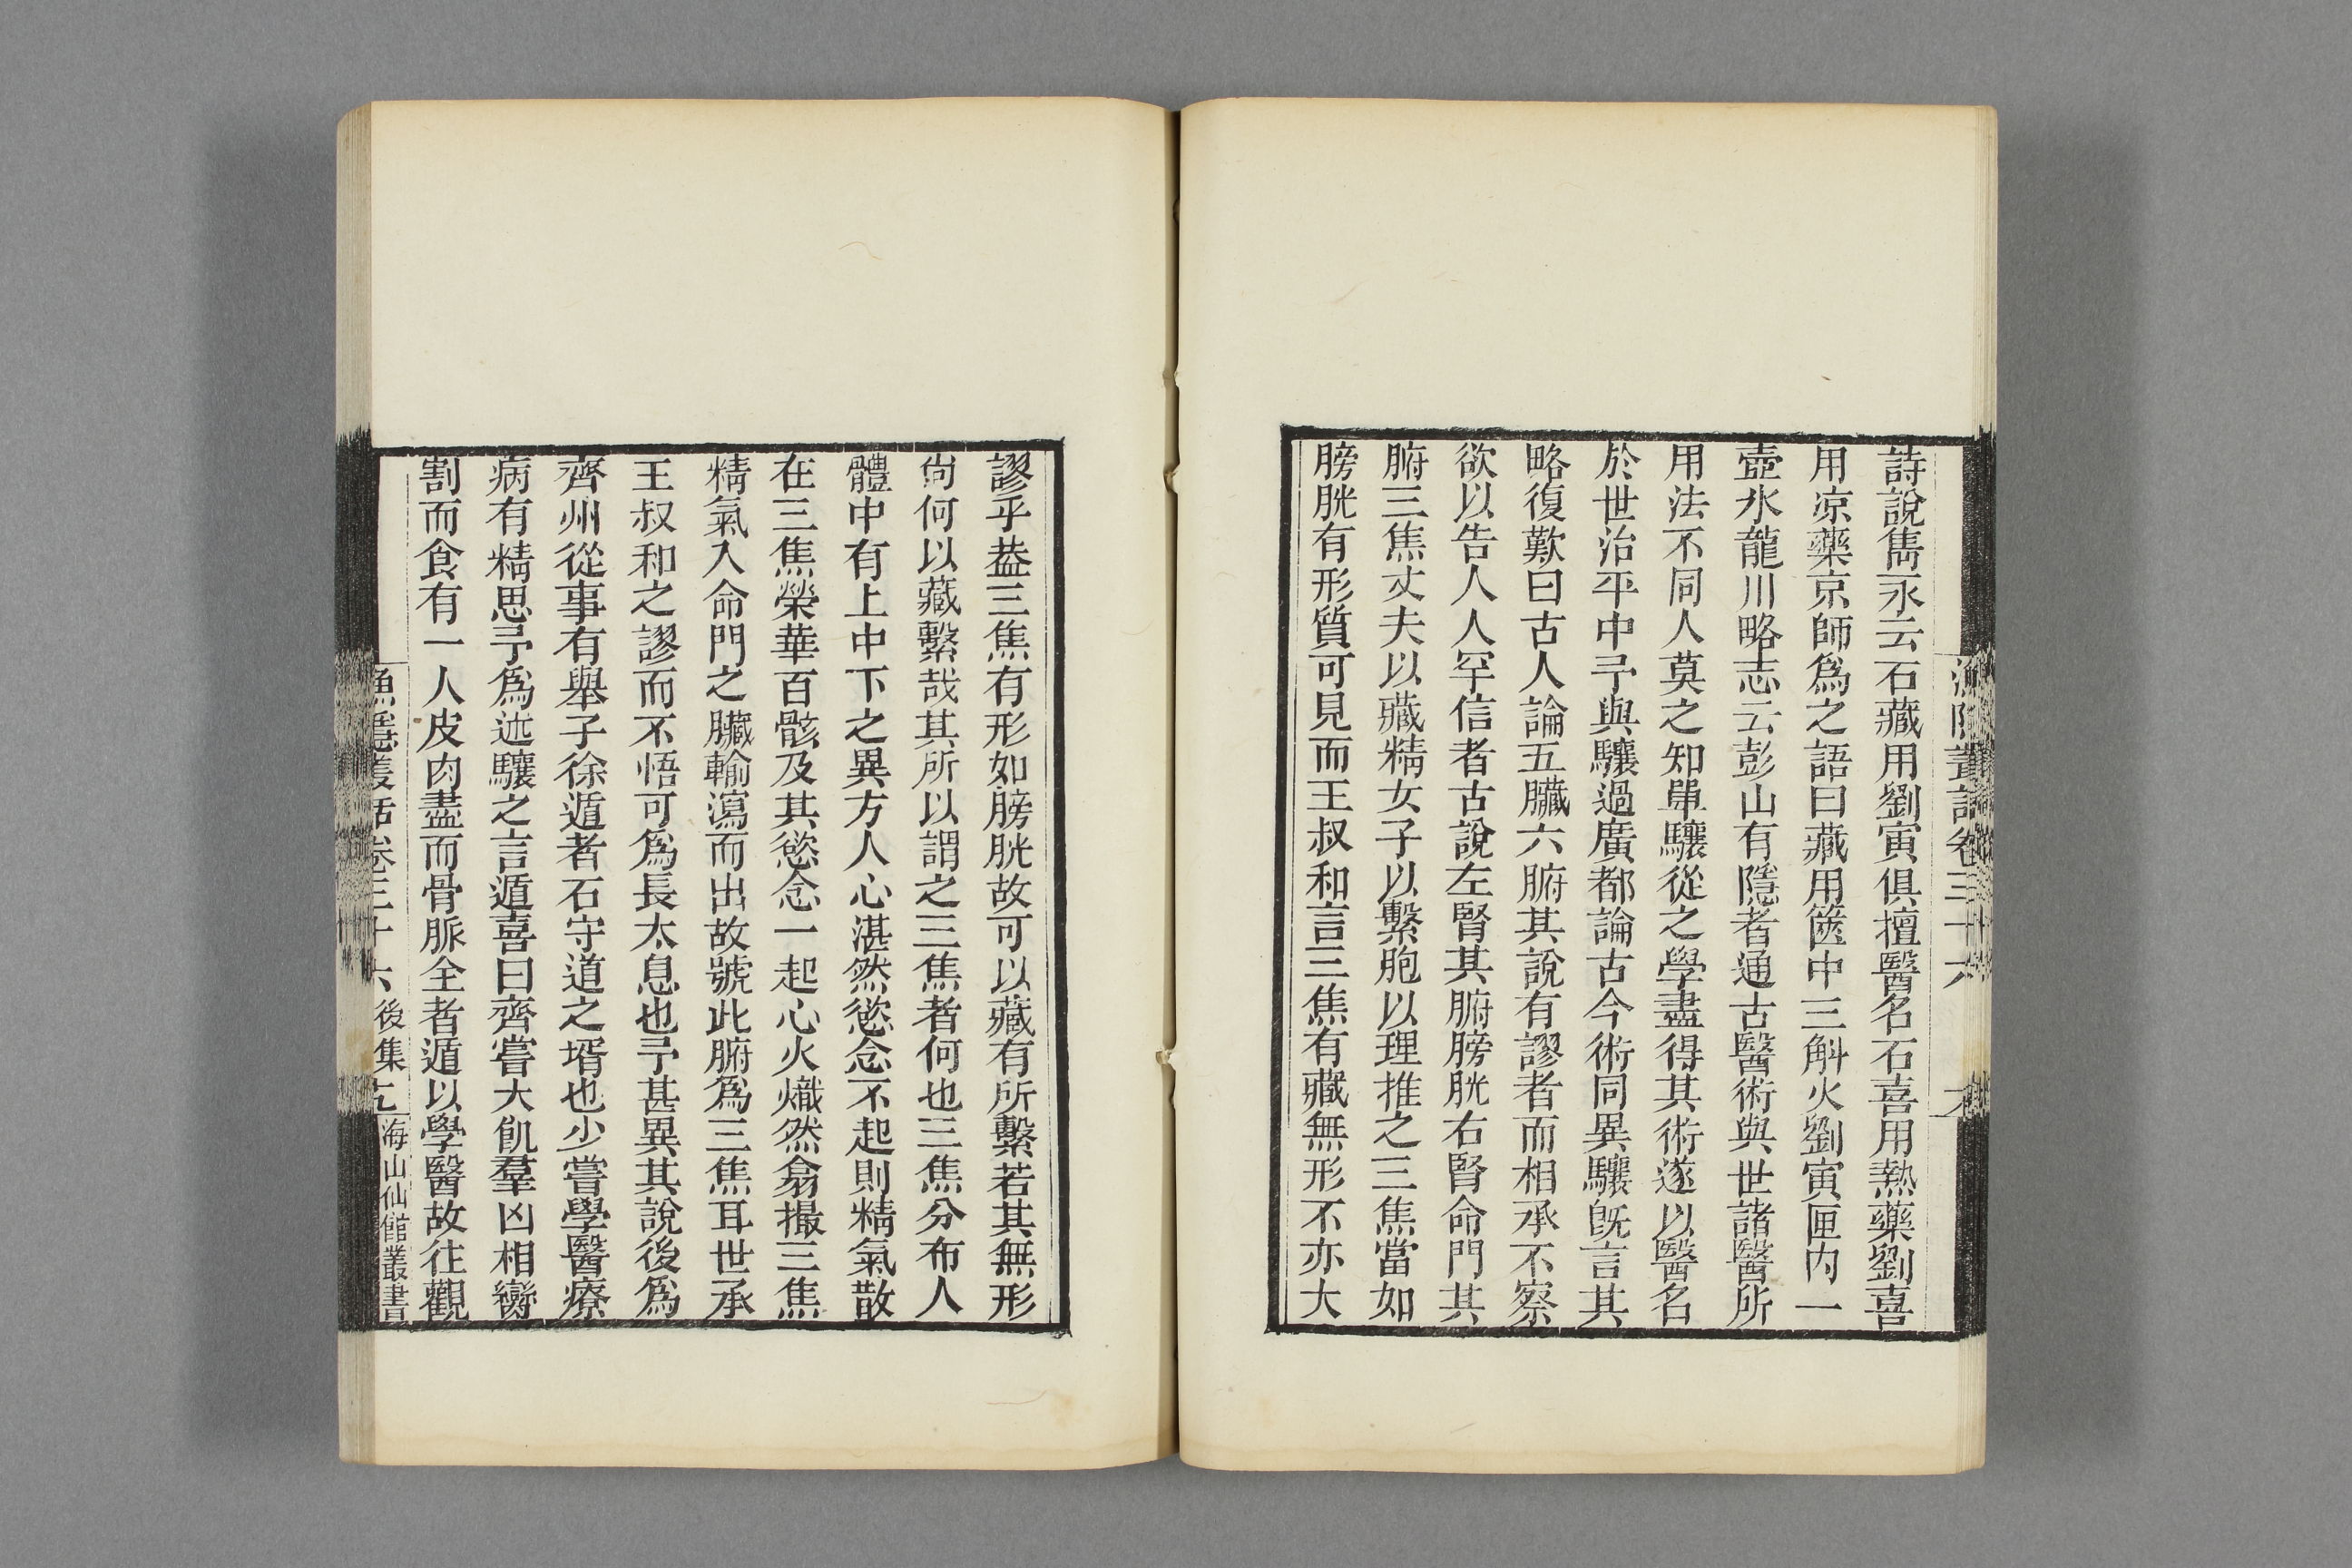 詩說雋永云石藏用劉寅俱擅醫名石喜用熱藥劉喜
用凉藥京師爲之語曰藏用篋中三斛火劉寅匣内一
壺氷龍川略志云彭山有隱者通古醫術與世諸醫所
用法不同人莫之知單驤從之學盡得其術遂以醫名
於世治平中予與驤過廣都論古今術同異驤旣言其
略復歎曰古人論五臟六腑其說有謬者而相承不察
欲以告人人罕信者古說左腎其腑膀胱右腎命門其
腑三焦丈夫以藏精女子以繫胞以理推之三焦當如
膀胱有形質可見而王叔和言三焦有藏無形不亦大
謬乎葢三焦有形如膀胱故可以藏有所繫若其無形
尙何以藏繫哉其所以謂之三焦者何也三焦分布人
體中有上中下之異方人心湛然慾念不起則精氣散
在三焦榮華百骸及其慾念一起心火熾然翕撮三焦
精氣入命門之臟輸瀉而出故號此腑爲三焦耳世承
王叔和之謬而不悟可爲長太息也予甚異其說後爲
齊州從事有舉子徐遁者石守道之壻也少嘗學醫療
病有精思予爲述驤之言遁喜曰齊嘗大飢羣凶相臠
割而食有一人皮肉盡而骨脈全者遁以學醫故往觀
漁隱叢話卷三十六 後集 海山仙館叢書